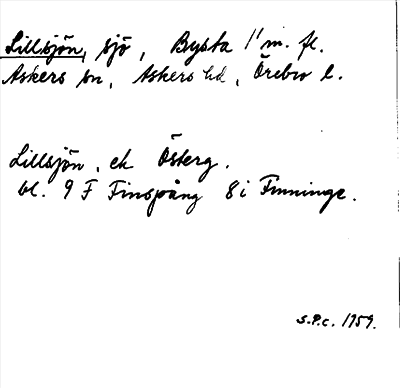 Lillsjön, sjö, Bysta 1/1 m. fl.
Askers sn, Askers hd, Örebro l.
Lillsjön, ek Österg.
bl. 9 F Finspång 8 i Finninge.
S.P.C. 1959.